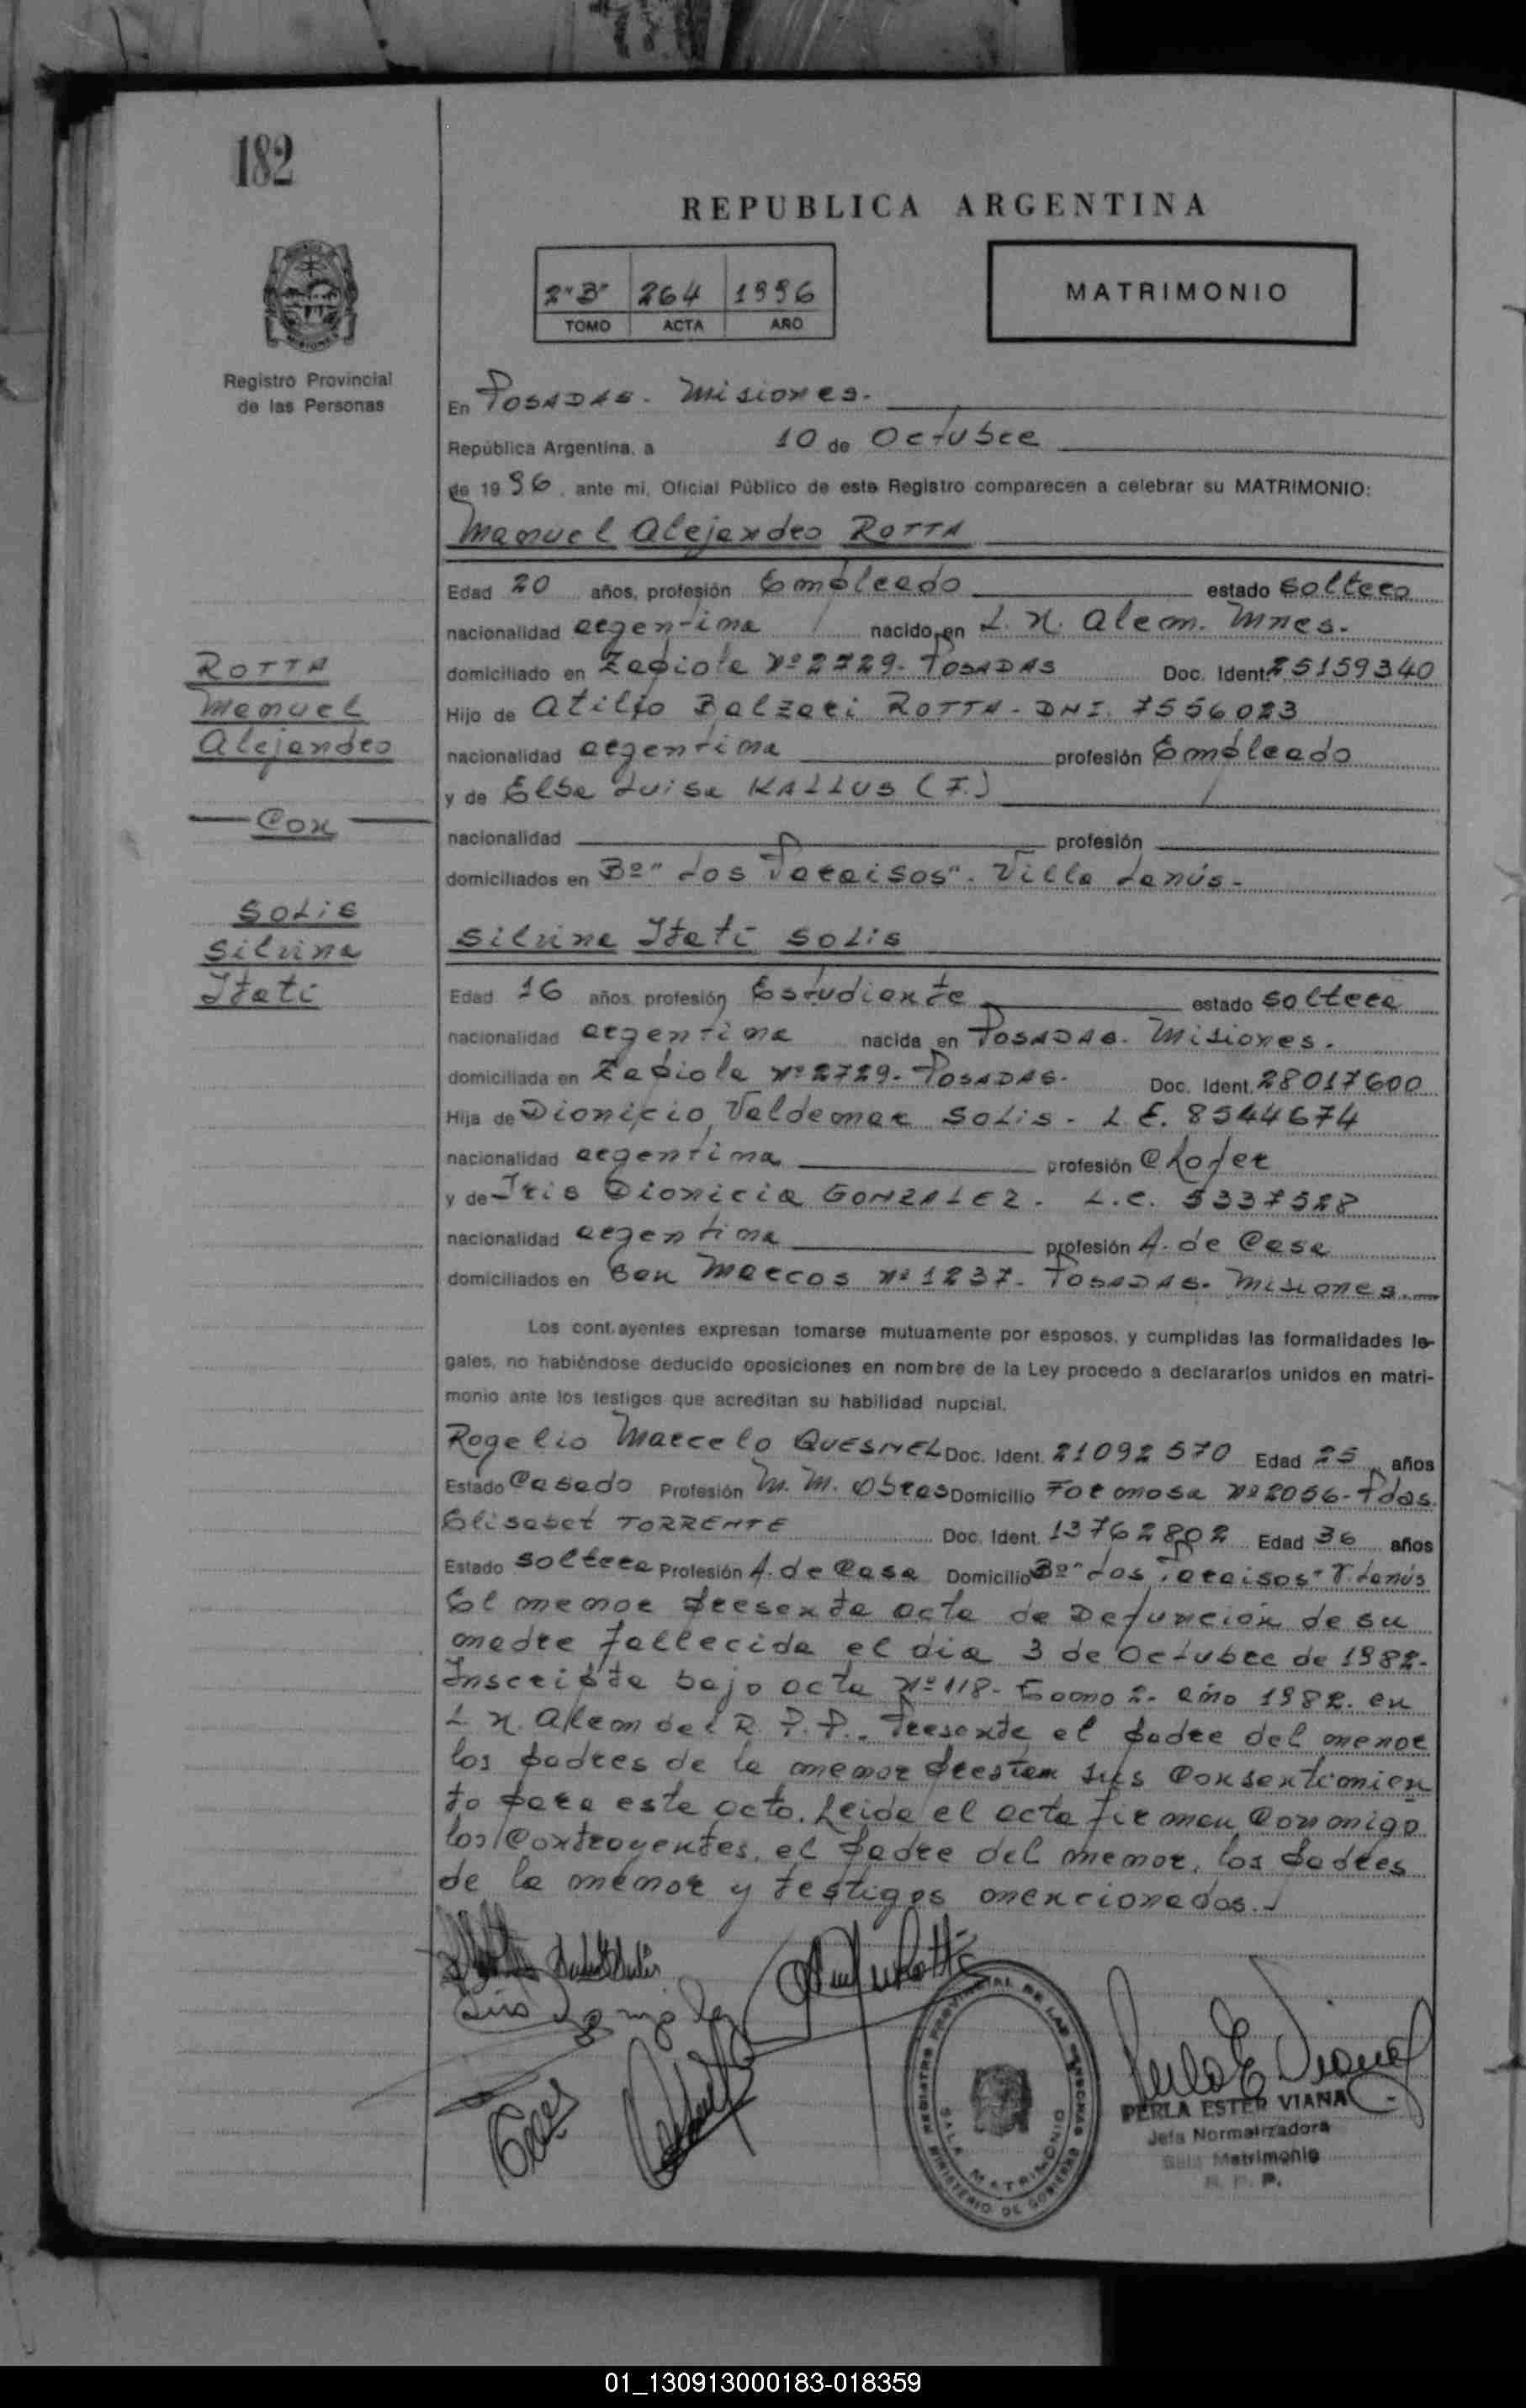 182
REPUBLICA ARGENTINA
Registro Provincial
de las Personas
2"B" 264 1996
TOMO ACTA AÑO
MATRIMONIO
En POSADAS. Misiones.
República Argentina, a 10 de Octubre
de 1996, ante mi, Oficial Público de este Registro comparecen a celebrar su MATRIMONIO:
Manuel Alejandro ROTTA
Edad 20 años, profesión Empleado estado soltero
nacionalidad argentina nacido en L. N. Alem. Mnes.
domiciliado en Zapiola Nº 2729- POSADAS Doc. Ident. 25159340
Hijo de Atilio Balzari ROTTA - DNI. 7556023
nacionalidad argentina profesión Empleado
y de Elba Luisa KALLUS (F.)
nacionalidad profesión
domiciliados en Bº "Los Paraisos". Villa Lanús-
ROTTA
Manuel
Alejandro
Con
SOLIS
Silvina
Itatí
Silvina Itatí SOLIS
Edad 16 años, profesión Estudiante estado soltera
nacionalidad argentina nacida en POSADAS. Misiones.
domiciliada en Zapiola Nº 2729- POSADAS. Doc. Ident. 28017600
Hija de Dionicio Valdemar SOLIS - L.E. 8544674
nacionalidad argentina profesión Chofer
y de Iris Dionicia GONZALEZ. L.C. 5337528
nacionalidad argentina profesión A. de Casa
domiciliados en San Marcos Nº 1237- POSADAS. Misiones.
Los contrayentes expresan tomarse mutuamente por esposos, y cumplidas las formalidades le-
gales, no habiéndose deducido oposiciones en nombre de la Ley procedo a declararlos unidos en matri-
monio ante los testigos que acreditan su habilidad nupcial.
Rogelio Marcelo QUESNEL Doc. Ident. 21092570 Edad 25 años
Estado Casado Profesión M. M. Obras Domicilio Formosa Nº 2056- Pdas.
Elisabet TORRENTE Doc. Ident. 13762802 Edad 36 años
Estado soltera Profesión A. de Casa Domicilio Bº "Los Paraisos" V. Lanús
El menor presenta acta de Defunción de su
madre fallecida el dia 3 de Octubre de 1982-
Inscripta bajo acta Nº 118- Tomo 2- año 1982. en
L. N. Alem del R. P. P.. Presente el padre del menor
los padres de la menor prestan sus Consentimien
to para este acto. Leida el acta firman Conmigo
los Contrayentes, el padre del menor, los padres
de la menor y testigos mencionados.
REGISTRO PROVINCIAL DE LAS PERSONAS
SALA MATRIMONIO
MINISTERIO DE GOBIERNO
PERLA ESTER VIANA
Jefa Normalizadora
Sala Matrimonio
R. P. P.
01_130913000183-018359